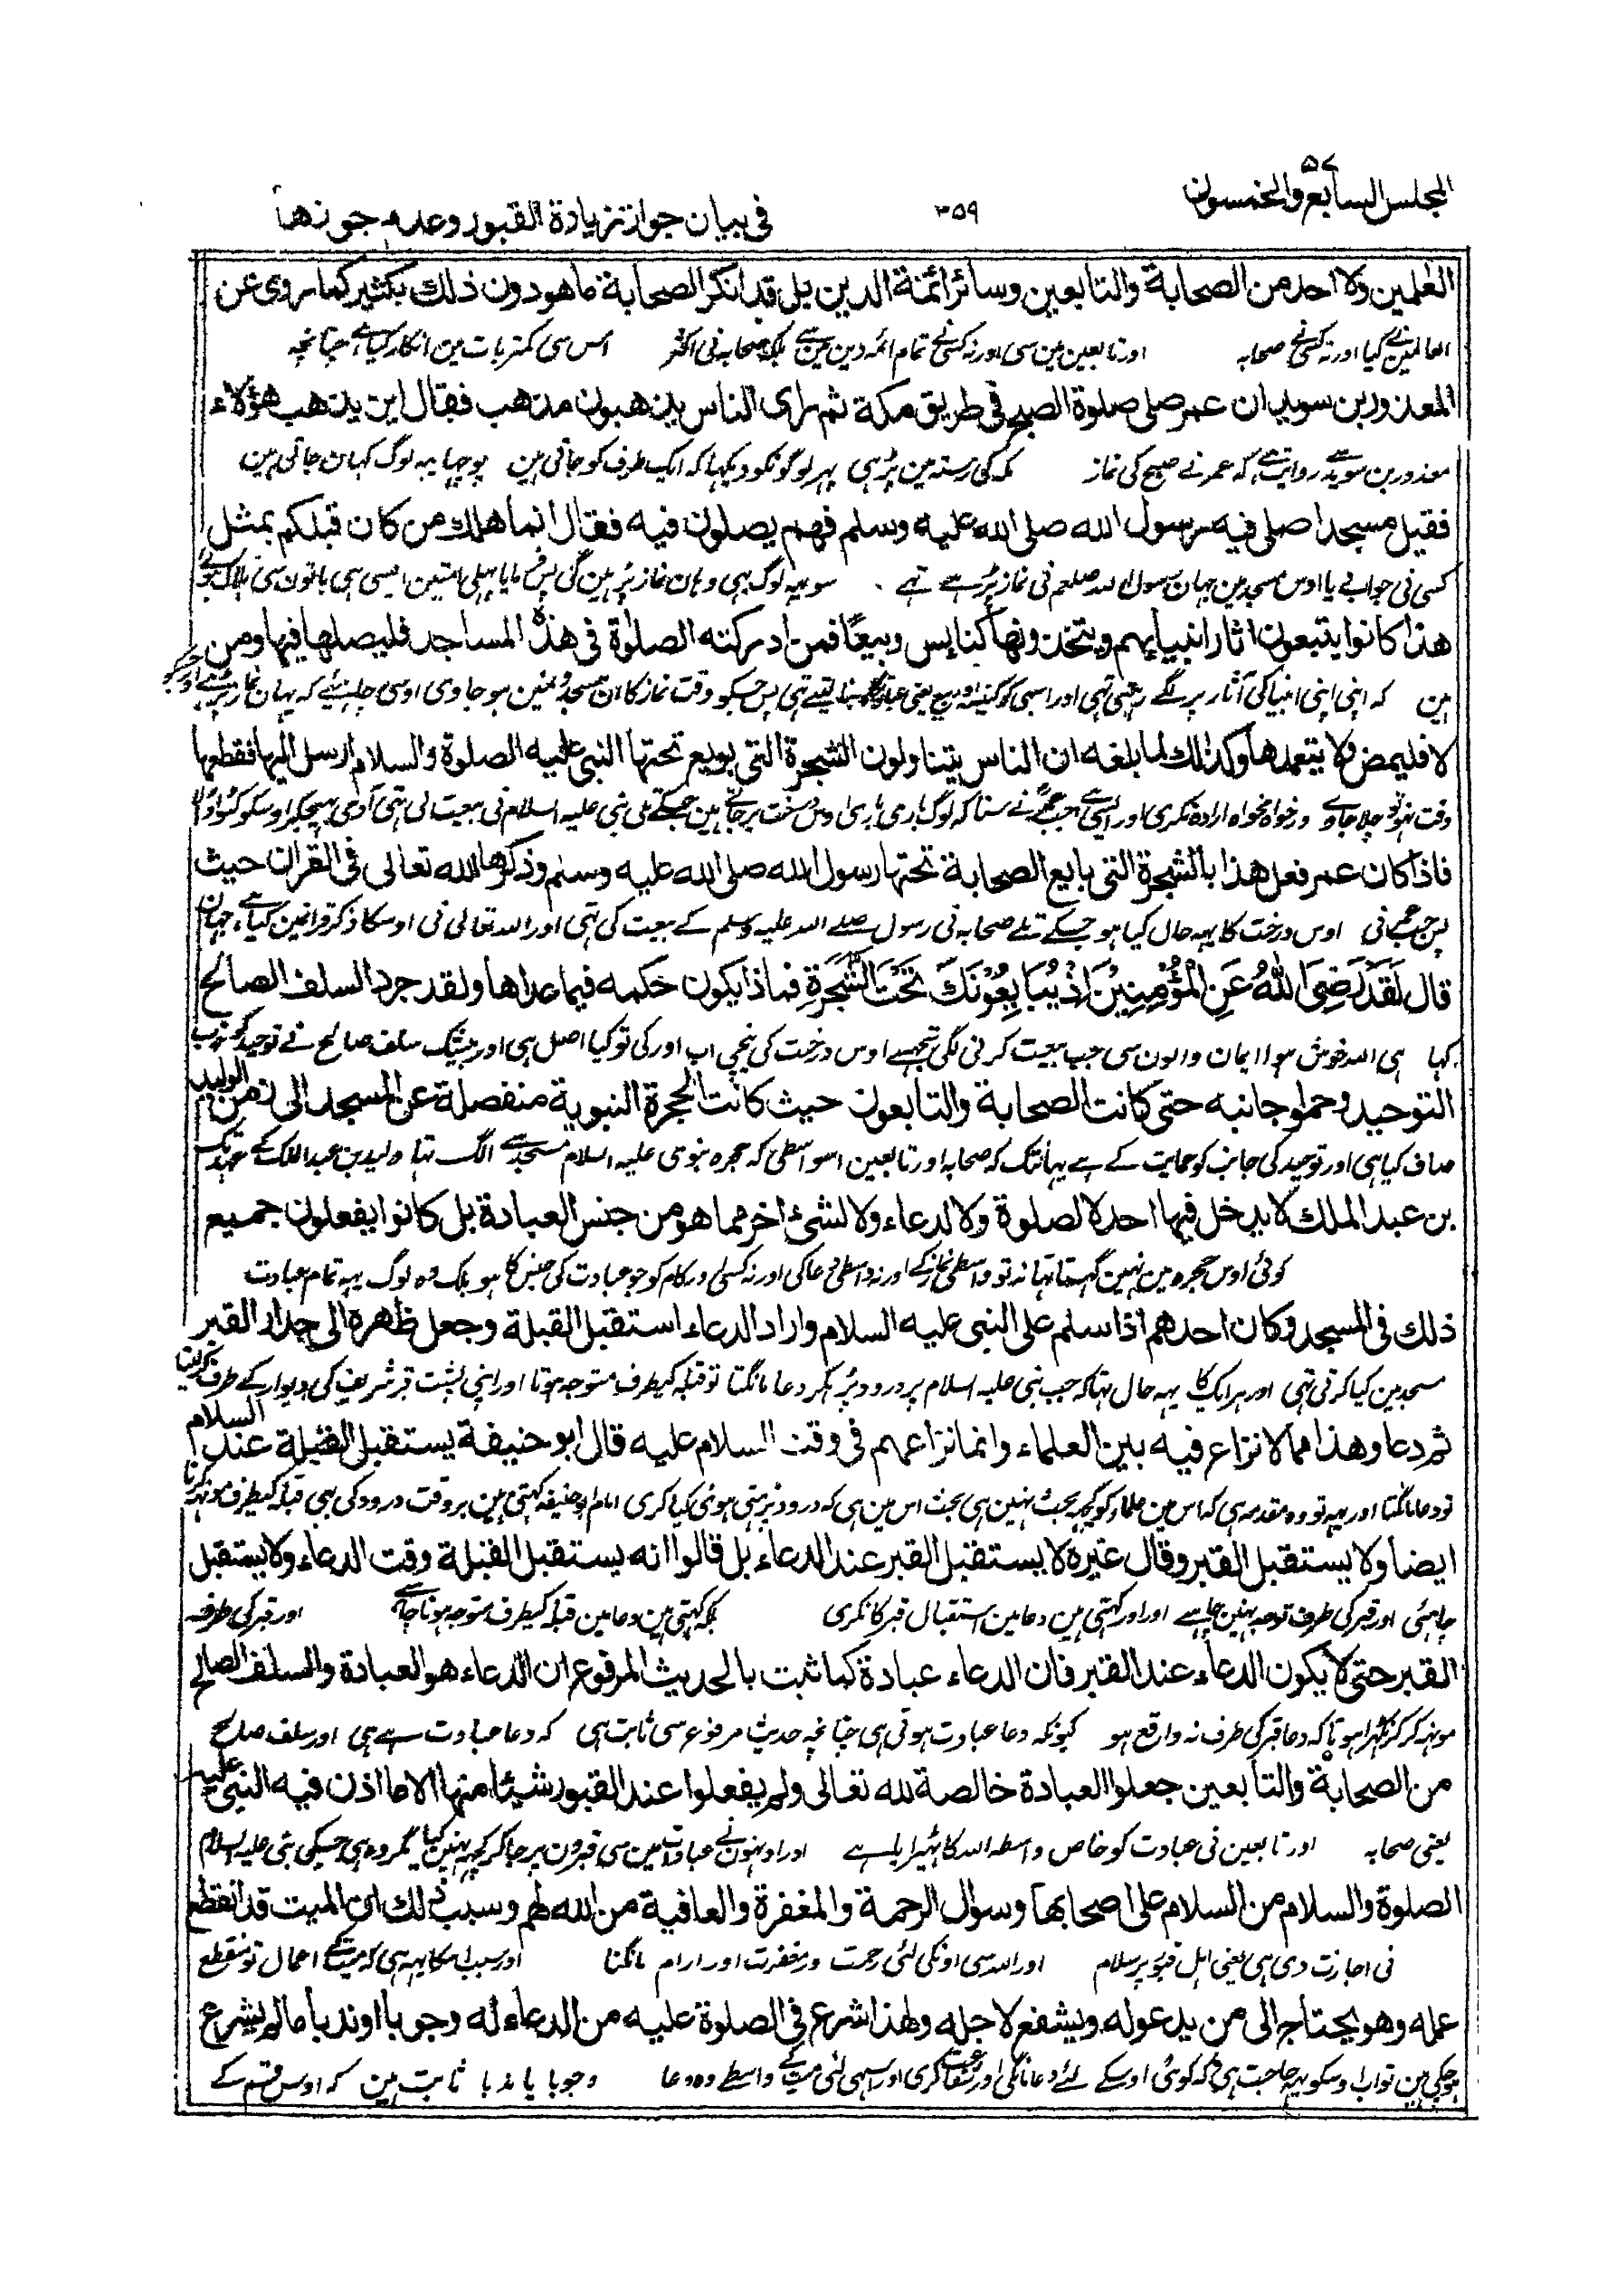 المجلس السابع والخمسون ۵۷
۳۵۹
فی بیان جواز زیارة القبور وعدم جوازها
العٰلمین ولا احد من الصحابة والتابعین وسائر ائمة الدین بل قد انکر الصحابة ما هو دون ذلك بکثیر کما روی عن
العالمین نے کیا اور نہ کسی نے صحابہ اور تابعین مین سی اور نہ کسی نے تمام ائمہ دین مین سے بلکہ صحابہ نی اکثر اس سی کمتر بات مین انکار کیا ہے چنانچہ
المعذور بن سوید ان عمر صلی صلوة الصبح فی طریق مکة ثم رای الناس یذهبون مذهب فقال این یذهب هؤلاء
معذور بن سوید سے روایت ہے کہ عمر نے صبح کی نماز مکہ کی رستہ مین پڑہی پہر لوگونکو دیکہا کہ ایک طرف کو جاتی ہین پوچہا یہہ لوگ کہان جاتی ہین
فقیل مسجدا صلی فیه رسول الله صلی الله علیه وسلم فهم یصلون فیه فقال انما هلك من کان قبلکم بمثل
کسی نی جواب دیا اوس مسجد مین جہان رسول اللہ صلعم نی نماز پڑہے تہے سو یہہ لوگ بہی وہان نماز پڑہین گی پس فرمایا پہلی امتین ایسی ہی باتون سی ہلاک ہوئے
هذا کانوا یتبعون اثار انبیایهم ویتخذونها کنایس وبیعًا فمن ادرکته الصلوٰة فی هذه المساجد فلیصلها فیها ومن
ہین کہ اپنی اپنی انبیا کی آثار پر لگے رہتی تہی اور اسی کو کنیسہ اور بیع یعنی عبادتگاہ بنا لیتے تہی پس جسکو وقت نماز کا ان مسجدونمین ہو جاوی اوسی چاہئے کہ یہان نماز پڑہے اور جسکو
لا فلیمض ولا یتعمدها وکذلك لما بلغه ان الناس یتناولون الشجرة التی بویع تحتها النبی علیه الصلوة والسلام ارسل الیها فقطعها
وقت نہو تو چلا جاوے ورخواہ مخواہ ارادہ نکری اور ایسی ہی جب عمر نے سنا کہ لوگ باری باری اوس درخت پر جاتے ہین جسکے تلی نبی علیہ السلام نی بیعت لی تہی آدمی بہیجکر اوسکو کٹوا ڈالا
فاذا کان عمر فعل هذا بالشجرة التی بایع الصحابة تحتها رسول الله صلی الله علیه وسلم وذکرها الله تعالی فی القران حیث
پس جب عمر نی اوس درخت کا یہہ حال کیا ہو جسکے تلے صحابہ نی رسول صلے اللہ علیہ وسلم کے بیعت کی تہی اور اللہ تعالی نی اوسکا ذکر قرانمین کیا ہے جہان
قال لَقَدْ رَضِیَ اللهُ عَنِ الْمُؤْمِنِیْنَ اِذْ یُبَایِعُوْنَكَ تَحْتَ الشَّجَرَةِ فماذا یکون حکمه فیما عداها ولقد جرد السلف الصالح
کہا ہی اللہ خوش ہوا ایمان والون سی جب بیعت کرنی لگی تجہسے اوس درخت کی نیچی اب اور کی تو کیا اصل ہی اور بیشک سلف صالح نے توحید کو خوب
التوحید وحموا جانبه حتی کانت الصحابة والتابعون حیث کانت الحجرة النبویة منفصلة عن المسجد الی زمن الولید
صاف کیا ہی اور توحید کی جانب کو حمایت کے ہے یہانتک کہ صحابہ اور تابعین اسواسطی کہ حجرہ نبوی علیہ السلام مسجد سے الگ تہا ولید بن عبد الملک کے عہد تک
بن عبد الملك لا یدخل فیها احد لا لصلوة ولا لدعاء ولا لشئ اخر مما هو من جنس العبادة بل کانوا یفعلون جمیع
کوئی اوس حجرہ مین نہین گہستا تہا نہ تو واسطی نماز کے اور نہ واسطی دعا کی اور نہ کسی اور کام کو جو عبادت کی جنس کا ہو بلکہ وہ لوگ یہہ تمام عبادت
ذلك فی المسجد وکان احدهم اذا سلم علی النبی علیه السلام واراد الدعاء استقبل القبلة وجعل ظهره الی جدار القبر
مسجد مین کیا کرتی تہی اور ہر ایک کا یہہ حال تہا کہ جب نبی علیہ السلام پر درود پڑہکر دعا مانگتا تو قبلہ کیطرف متوجہ ہوتا اور اپنی پشت قبر شریف کی دیوار کے طرف کر لیتا
ثم دعا وهذا مما لا نزاع فیه بین العلماء وانما نزاعهم فی وقت السلام علیه قال ابو حنیفة یستقبل القبلة عند السلام
تو دعا مانگتا اور یہہ تو وہ مقدمہ ہی کہ اس مین علماء کو کچہہ بحث نہین ہی بحث اس مین ہی کہ درود پڑہتی ہوئی کیا کری امام ابو حنیفہ کہتی ہین بر وقت درود کی بہی قبلہ کیطرف مونہہ کرنا
ایضا ولا یستقبل القبر وقال غیره لا یستقبل القبر عند الدعاء بل قالوا انه یستقبل القبلة وقت الدعاء ولا یستقبل
چاہئی اور قبر کی طرف توجہ نہین چاہیے اور اور کہتی ہین دعا مین استقبال قبر کا نکری بلکہ کہتی ہین دعا مین قبلہ کیطرف متوجہ ہونا چاہیے اور قبر کی طرف
القبر حتی لا یکون الدعاء عند القبر فان الدعاء عبادة کما ثبت بالحدیث المرفوع ان الدعاء هو العبادة والسلف الصالح
مونہہ کر کر نہ کہڑا ہو تا کہ دعا قبر کی طرف نہ واقع ہو کیونکہ دعا عبادت ہوتی ہی چنانچہ حدیث مرفوع سی ثابت ہی کہ دعا عبادت ہے ہی اور سلف صالح
من الصحابة والتابعین جعلوا العبادة خالصة لله تعالی ولم یفعلوا عند القبور شیئا منها الا ما اذن فیه النبی علیه
یعنی صحابہ اور تابعین نی عبادت کو خاص واسطہ اللہ کا ٹہیرایا ہے اور اونہون نے عبادات مین سی قبرون پر جا کر کچہہ نہین کیا مگر وہ ہی جسکی نبی علیہ السلام
الصلوة والسلام من السلام علی اصحابها وسوال الرحمة والمغفرة والعافیة من الله لهم وسبب ذلك ان المیت قد انقطع
نی اجازت دی ہی یعنی اہل قبور پر سلام اور اللہ سی اونکی لئی رحمت ور مغفرت اور ارام مانگنا اور سبب اسکا یہہ ہی کہ میت کے اعمال تو منقطع
عمله وهو یحتاج الی من یدعوله ویشفع لاجله ولهذا شرع فی الصلوة علیه من الدعاء له وجوبا او ندبا ما لم یشرع
ہو چکی ہین تو اب اوسکو یہہ حاجت ہی کہ کوئی اوسکے لئے دعا مانگی اور شفاعت کری اور اسی لئی میت کے واسطے وہ دعا وجوبا یا ندبا ثابت ہین کہ اوس قسم کے